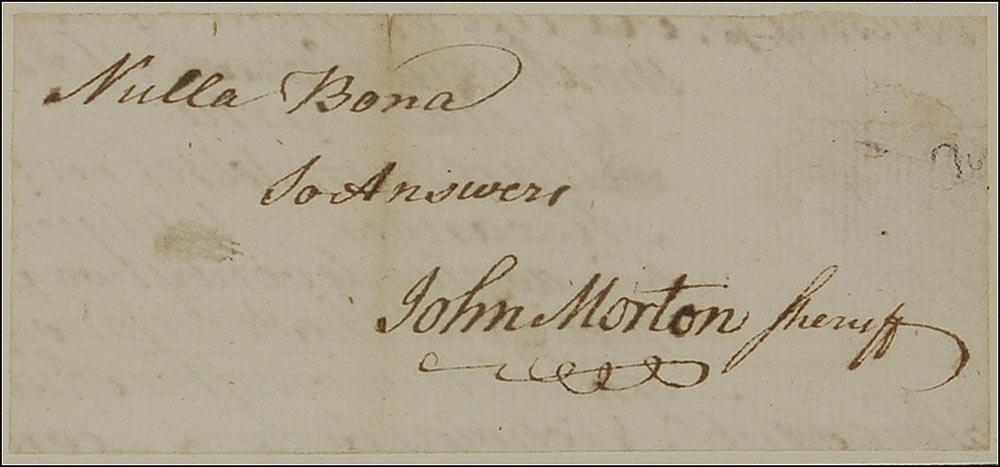 Nulla Bona
So Answers
John Morton Sheriff